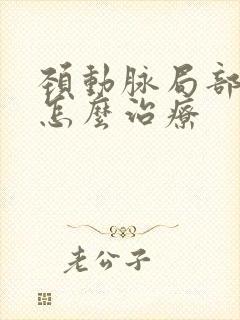 頚動脉局部
怎麼治療
老公子